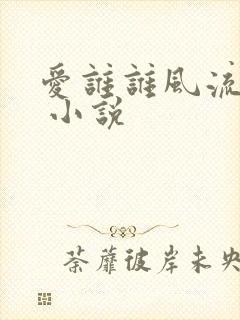 愛誰誰風流
小說
荼蘼彼岸未央